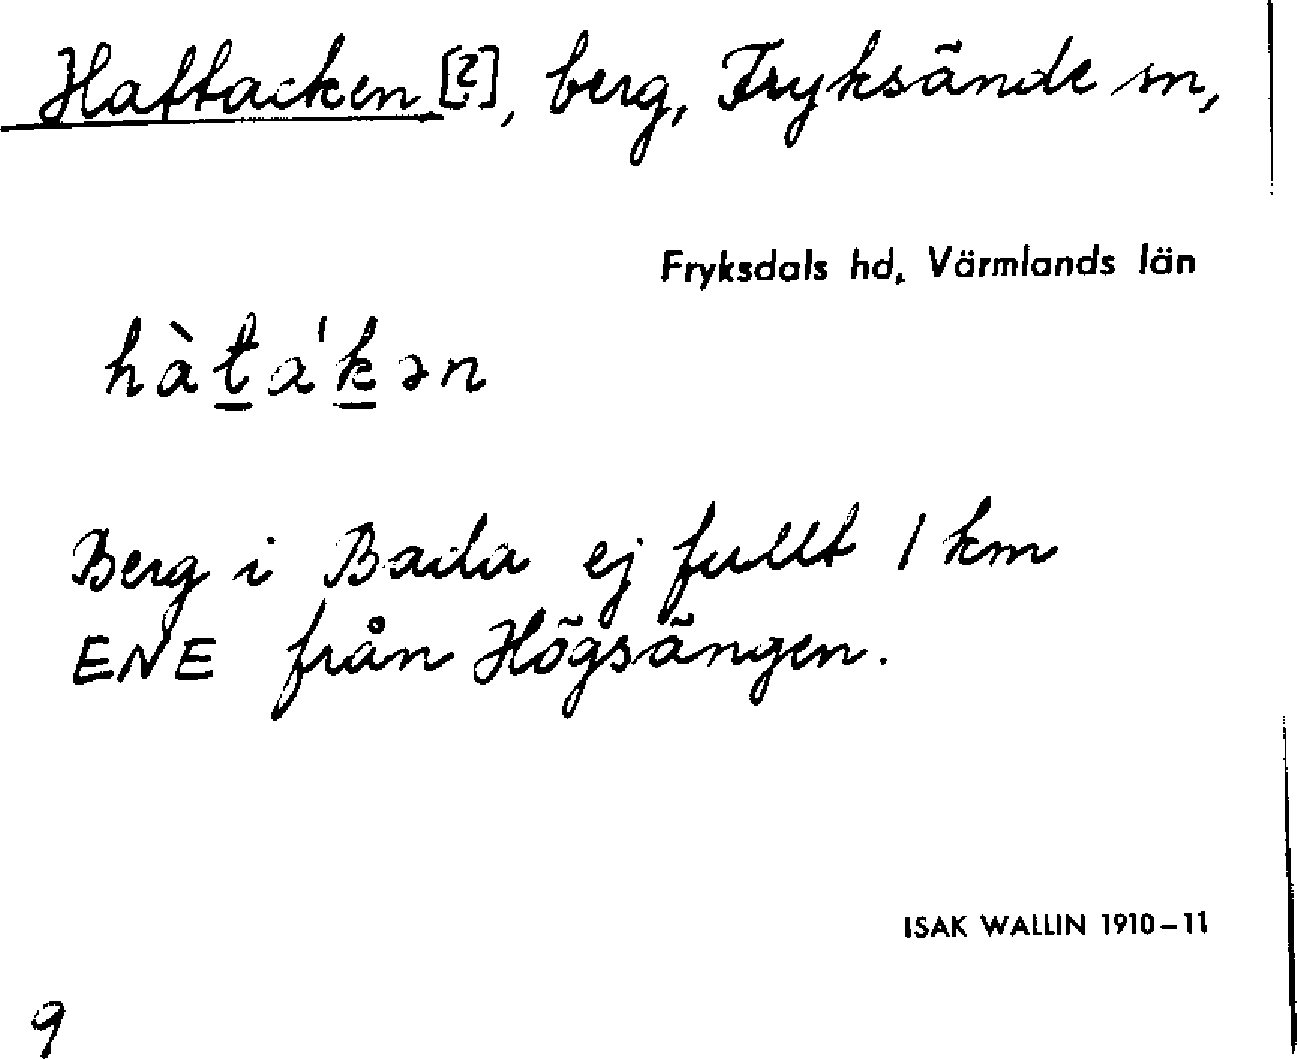 Haftacken [?], berg, Fryksände sn,
Fryksdals hd, Värmlands län
hàt̲a'k̲ən
Berg i Bada ej fullt 1 km
ENE från Högsängen.
ISAK WALLIN 1910–11
9